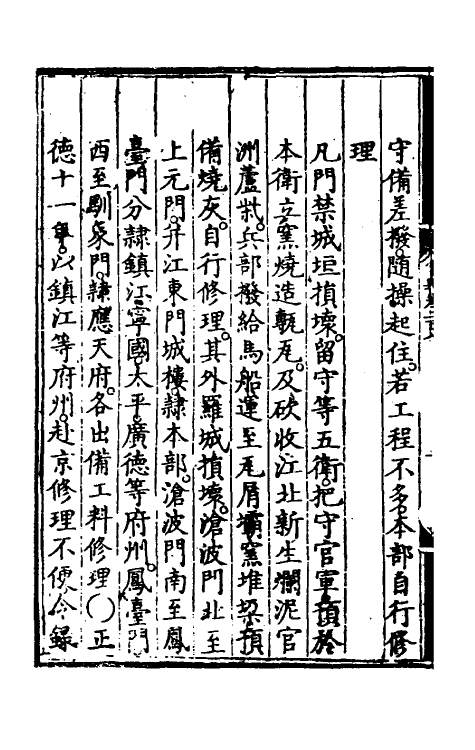 守備差撥。隨操起住。若工程不多。本部自行修
理
凡門禁城垣損壞。留守等五衛。把守官軍預於
本衛立窯燒造甎瓦。及砍收江北新生爛泥官
洲蘆柴。兵部撥給馬船運至瓦屑壩窯堆垜預
備燒灰。自行修理。其外羅城損壞。滄波門北至
上元門。并江東門城樓隸本部。滄波門南至鳳
臺門。分隸鎮江寧國太平廣德等府州。鳳臺門
西至馴象門。隸應天府。各出備工料修理〇正
德十一年。以鎮江等府州。赴京修理不便。令錄